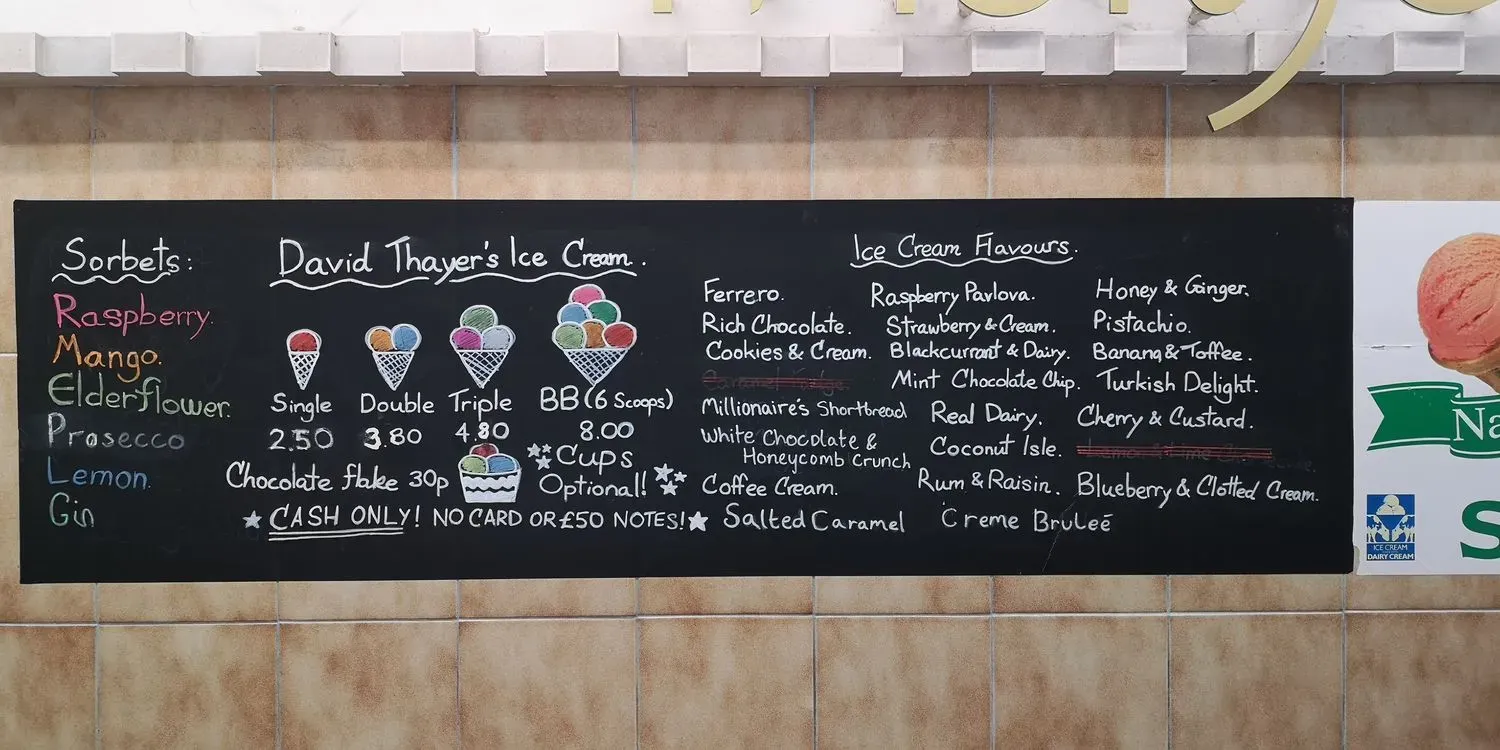 Sorbets:
Raspberry.
Mango.
Elderflower.
Prosecco
Lemon.
Gin
David Thayer's Ice Cream.
Single
2.50
Double
3.80
Triple
4.80
BB (6 Scoops)
8.00
Chocolate flake 30p
Cups
Optional!
CASH ONLY! NO CARD OR £50 NOTES!
Ice Cream Flavours.
Ferrero.
Rich Chocolate.
Cookies & Cream.
Caramel Fudge.
Millionaire's Shortbread
White Chocolate &
Honeycomb Crunch
Coffee Cream.
Salted Caramel
Raspberry Pavlova.
Strawberry & Cream.
Blackcurrant & Dairy.
Mint Chocolate Chip.
Real Dairy.
Coconut Isle.
Rum & Raisin.
Creme Bruleé
Honey & Ginger.
Pistachio.
Banana & Toffee.
Turkish Delight.
Cherry & Custard.
Blueberry & Clotted Cream.
Na
S
ICE CREAM
DAIRY CREAM